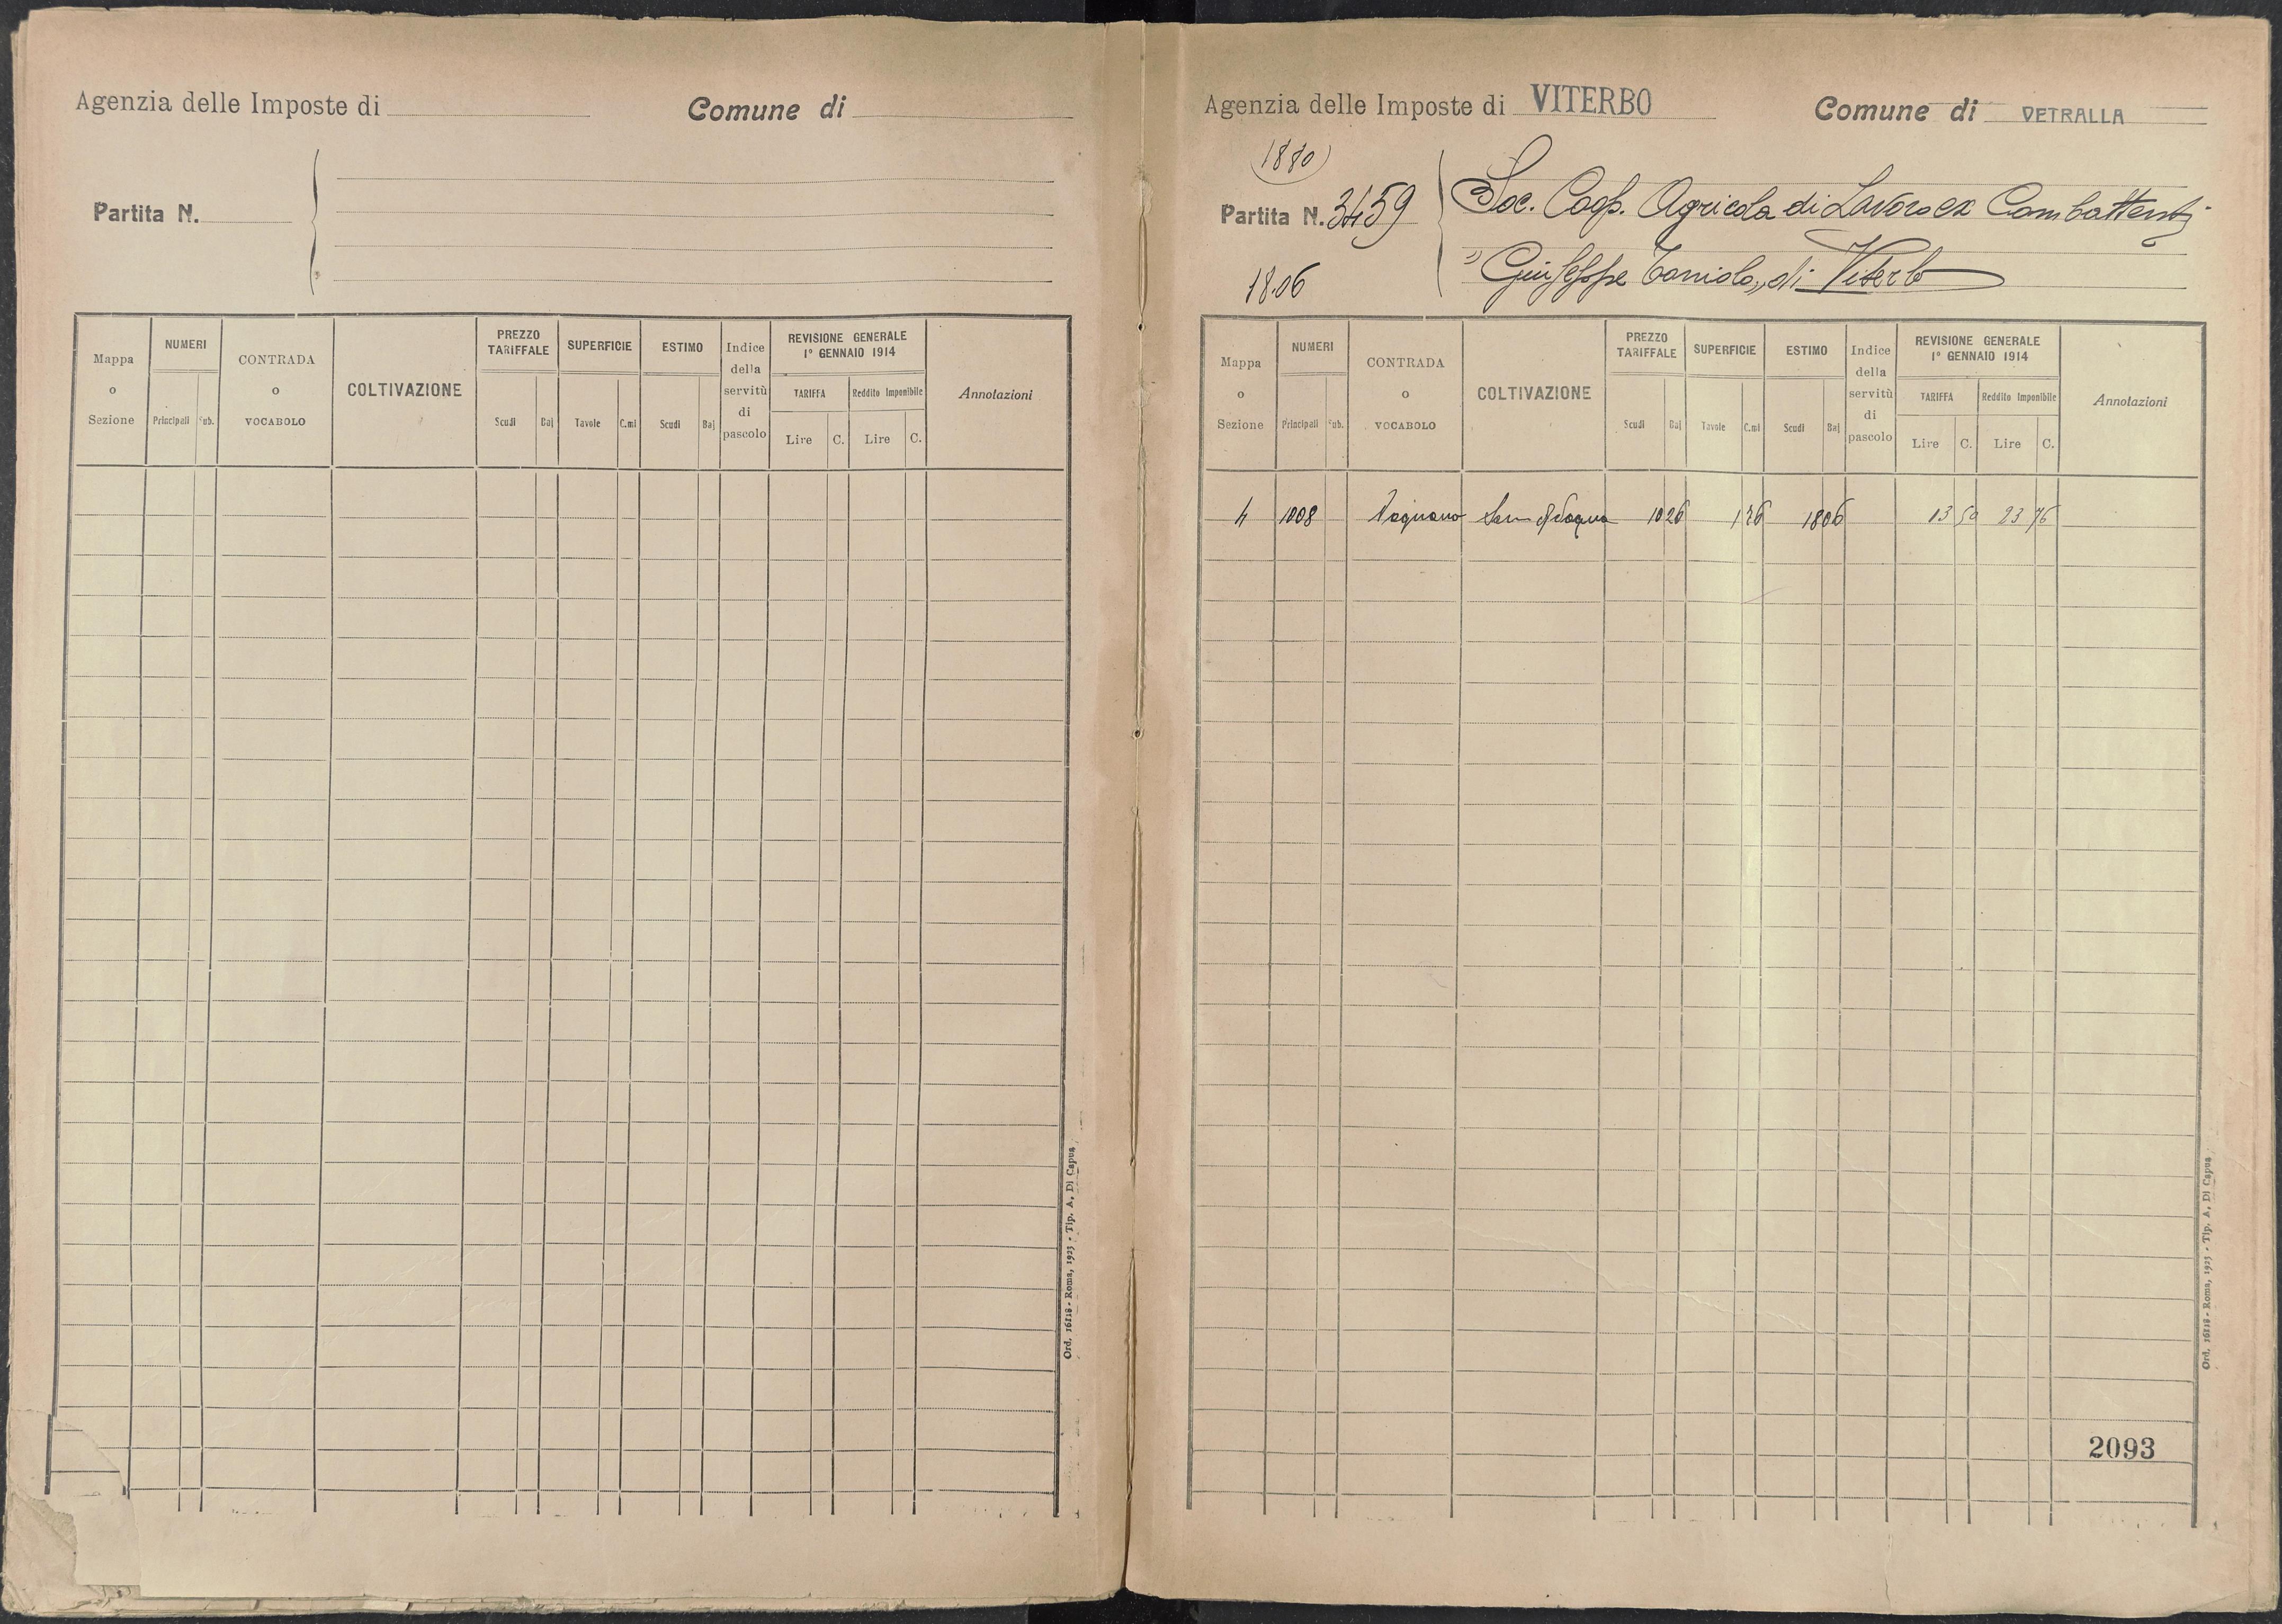 Agenzia delle Imposte di
Comune di
Partita N.
Mappa o Sezione
NUMERI
Principali
Sub.
CONTRADA o VOCABOLO
COLTIVAZIONE
PREZZO TARIFFALE
Scudi
Baj
SUPERFICIE
Tavole
C.mi
ESTIMO
Scudi
Baj
Indice della servitù di pascolo
REVISIONE GENERALE
1° GENNAIO 1914
TARIFFA
Reddito Imponibile
Lire
C.
Lire
C.
Annotazioni
Ord. 16118 - Roma, 1923 - Tip. A. Di Capua
Agenzia delle Imposte di VITERBO
Comune di VETRALLA
(1880)
Partita N. 3459
Soc. Coop. Agricola di Lavoro ex Combattenti
"Giuseppe Toniolo,, di Viterbo
18.06
Mappa o Sezione
NUMERI
Principali
Sub.
CONTRADA o VOCABOLO
COLTIVAZIONE
PREZZO TARIFFALE
Scudi
Baj
SUPERFICIE
Tavole
C.mi
ESTIMO
Scudi
Baj
Indice della servitù di pascolo
REVISIONE GENERALE
1° GENNAIO 1914
TARIFFA
Reddito Imponibile
Lire
C.
Lire
C.
Annotazioni
4 1008 10 26 1 76 18 06 13 50 23 76
2093
Ord. 16118 - Roma, 1923 - Tip. A. Di Capua